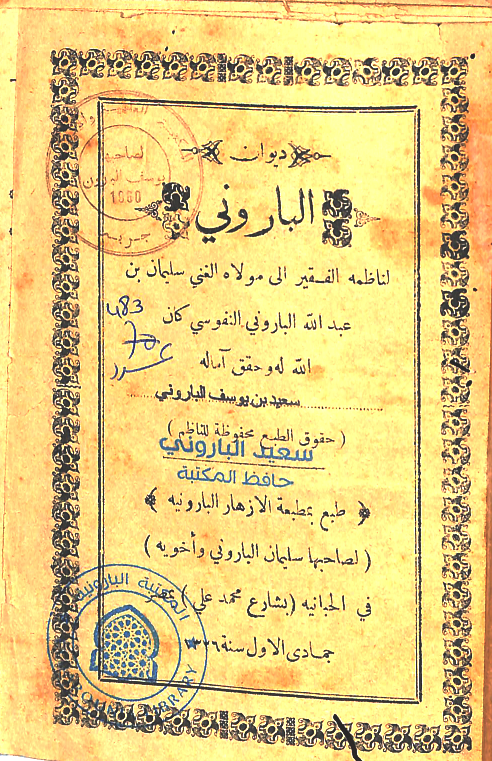 ديوان
الباروني
لناظمه الفقير الى مولاه الغني سليمان بن
عبد الله الباروني النفوسي كان
الله له وحقق آماله
سعيد بن يوسف الباروني
( حقوق الطبع محفوظة للناظم )
سعيد الباروني
حافظ المكتبة
طبع بمطبعة الازهار البارونيه
( لصاحبها سليمان الباروني وأخويه )
في الحبانيه (بشارع محمد علي)
جمادى الاول سنة ١٣٢٦
لصاحبها
يوسف الباروني
جربة
483
المكتبة البارونية
LIBRARY